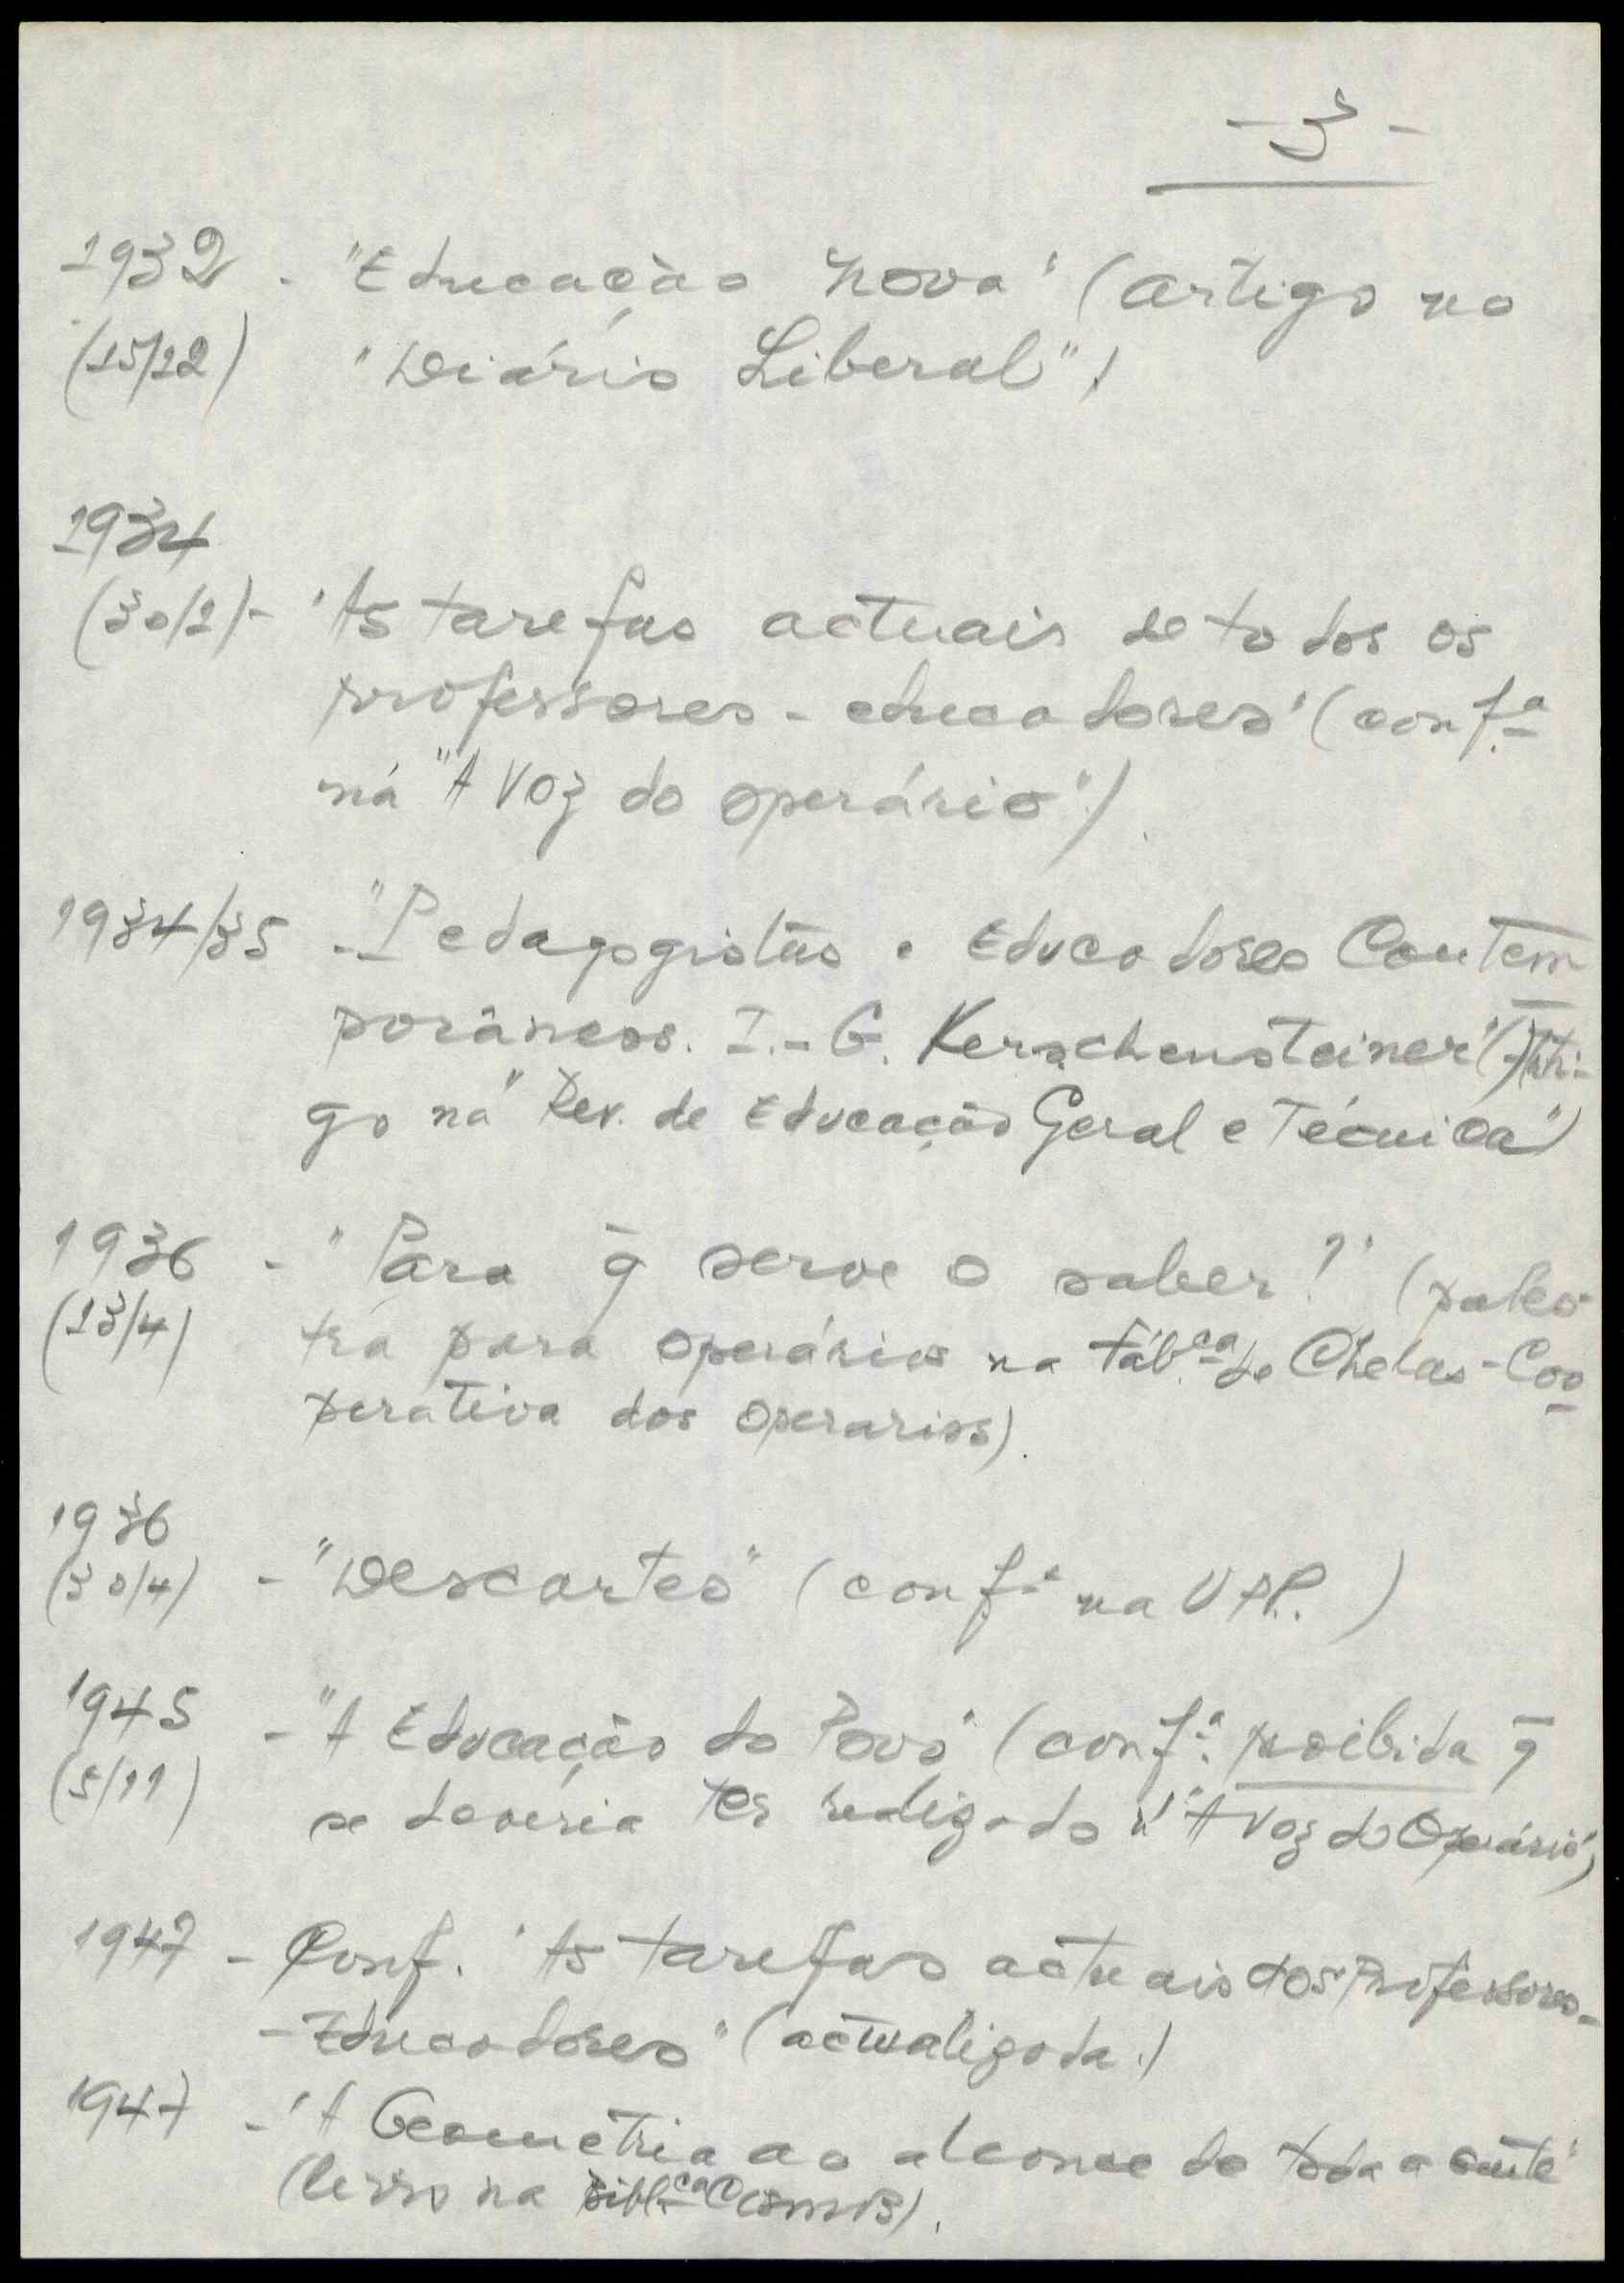 - 3 -
1932 - "Educação Nova" (artigo no
(15/12) "Diário Liberal")
1934
(30/1) - "As tarefas actuais de todos os
professores-educadores" (conf.ª
na "A Voz do operário").
1934/35 - "Pedagogistas e Educadores Contem
porâneos. I.- G. Kerschensteiner" (Arti-
go na "Rev. de Educação Geral e Técnica")
1936 - "Para q̄ serve o saber?" (pales-
(13/4) tra para operários na Fáb.ca de Chelas - Coo
perativa dos operarios).
1936
(30/4) - "Descartes" (conf.ª na U.P.P.)
1945 - "A Educação do Povo" (conf.ª proibida q̄
(5/11) se deveria ter realizado n' "A Voz do Operário")
1947 - Conf. "As tarefas actuais dos Professores-
- Educadores" (actualizada.)
1947 - "A Geometria ao alcance de toda a gente"
(livro na Bibl.ca Cosmos).